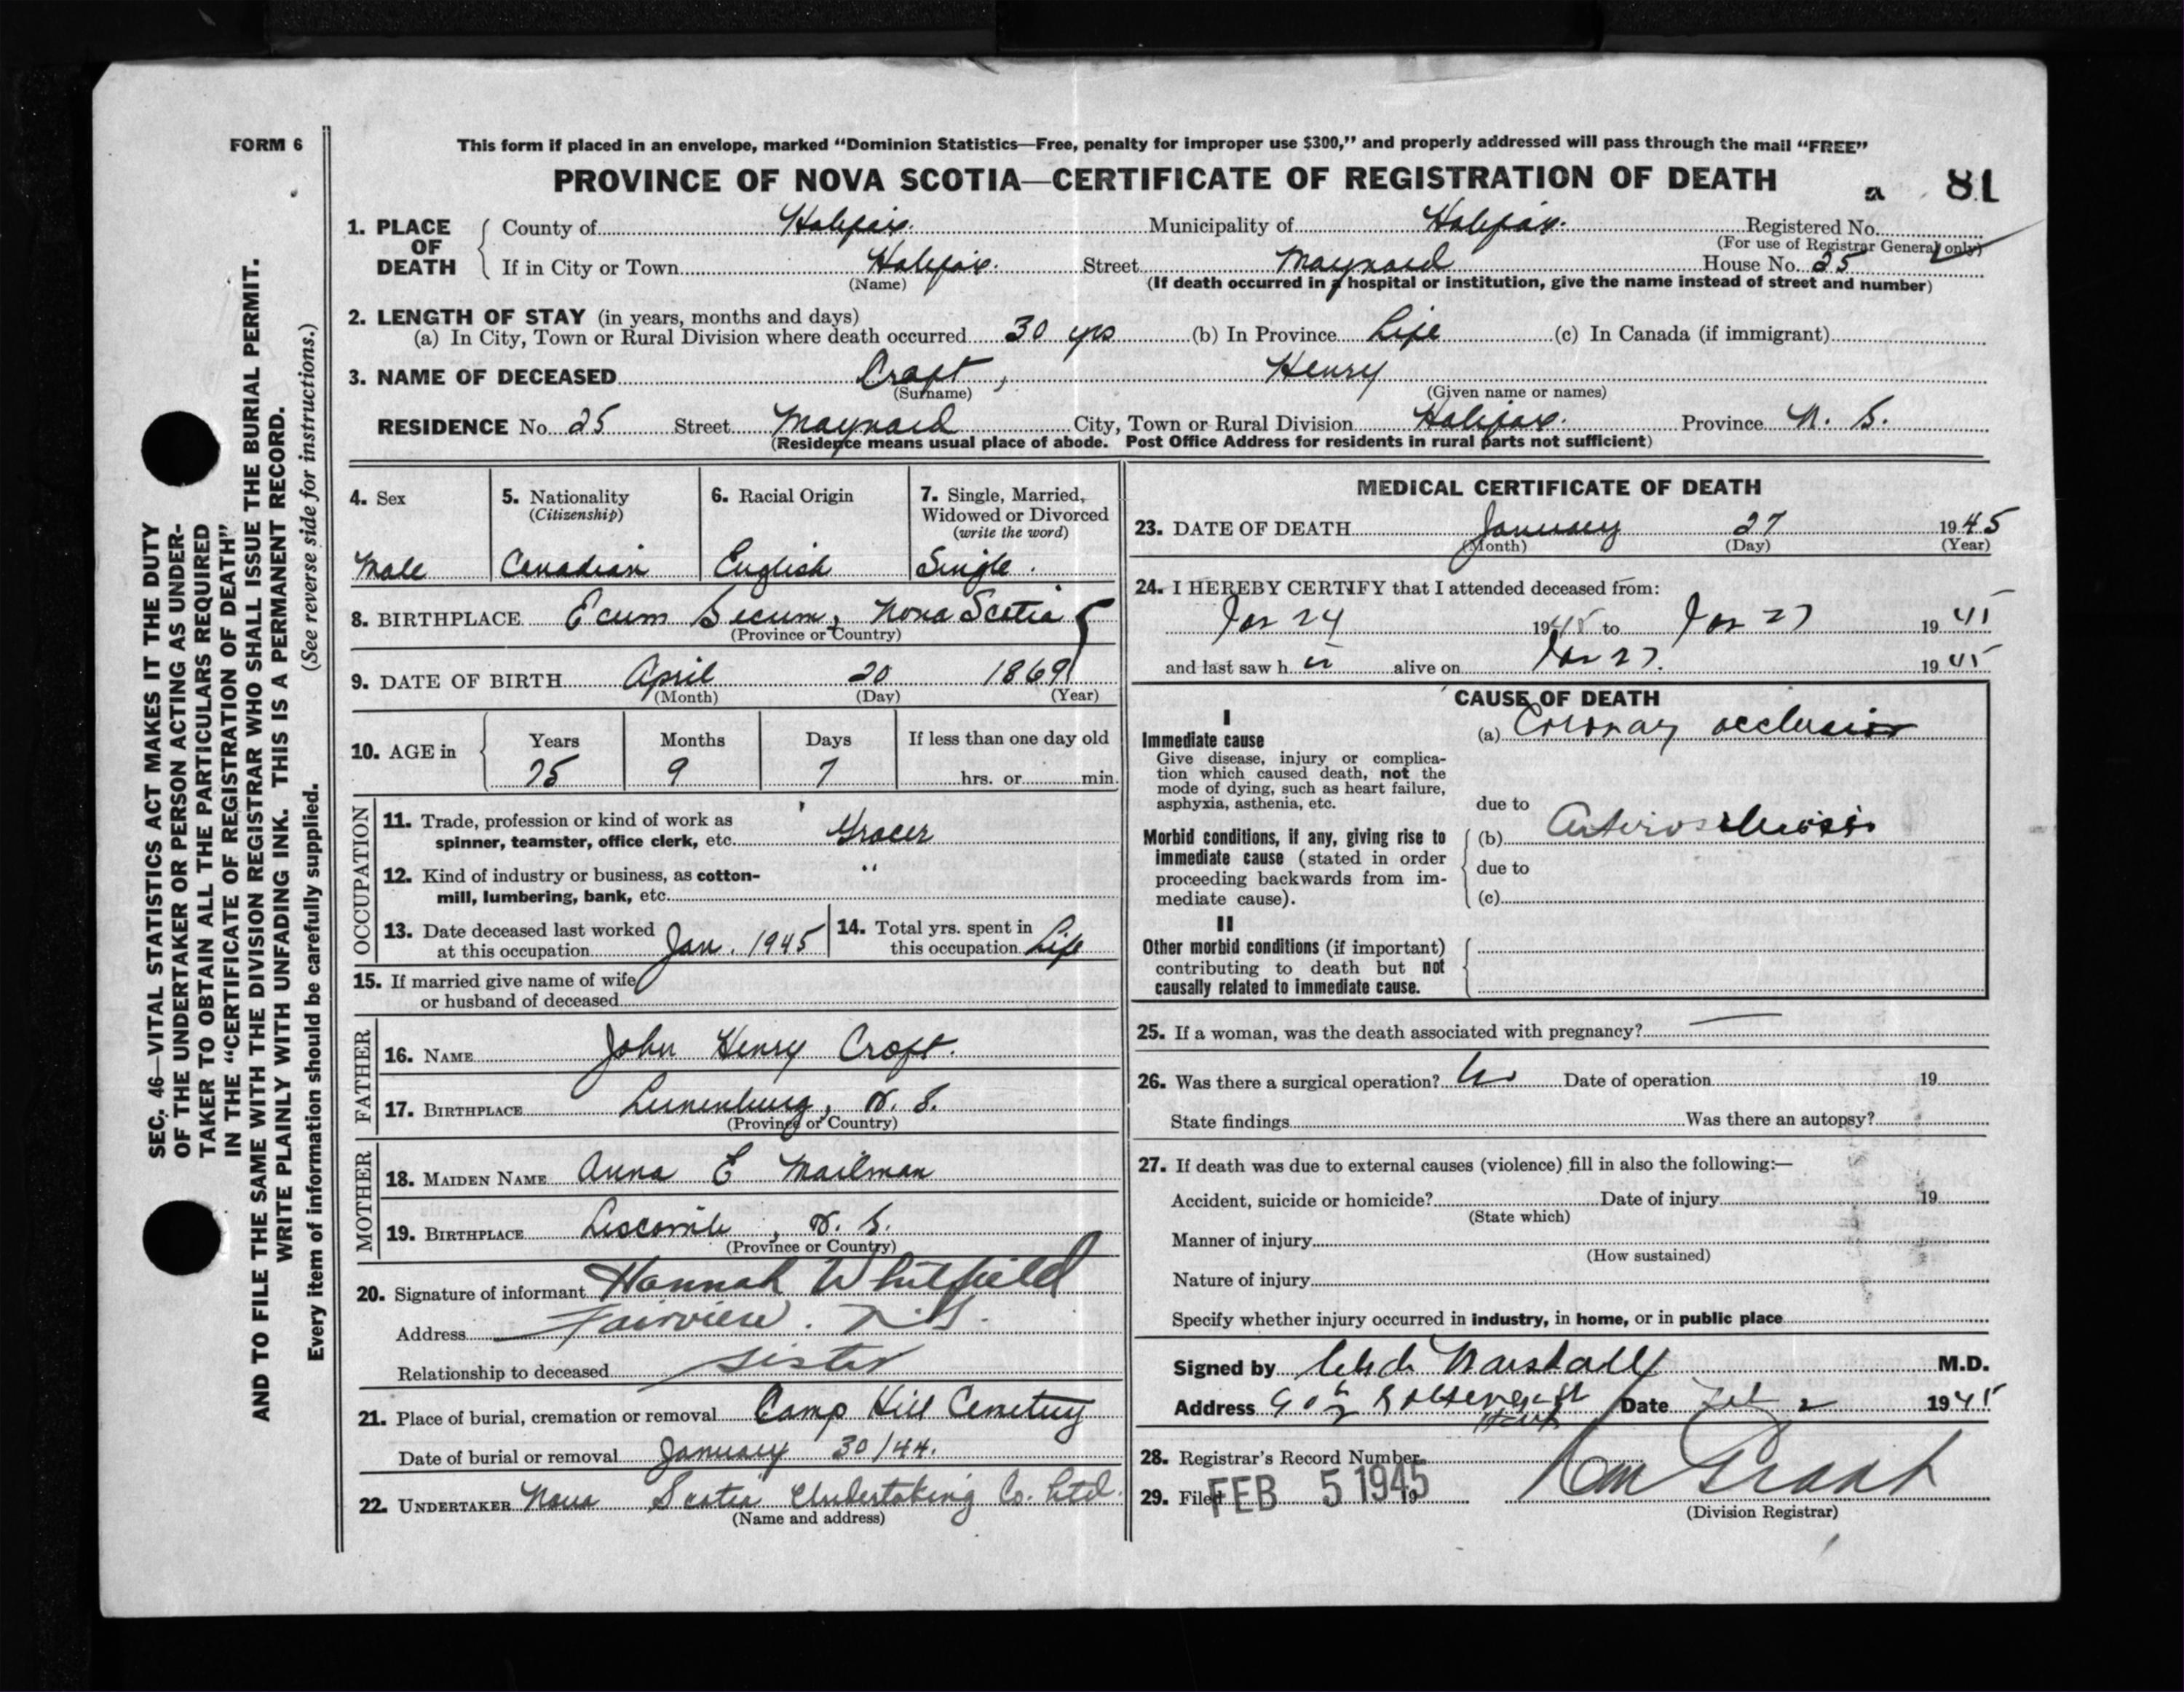 FORM 6
This form if placed in an envelope, marked “Dominion Statistics—Free, penalty for improper use $300,” and properly addressed will pass through the mail “FREE”
PROVINCE OF NOVA SCOTIA—CERTIFICATE OF REGISTRATION OF DEATH a 81
1. PLACE OF DEATH County of Halifax. Municipality of Halifax. Registered No.
(For use of Registrar General only)
If in City or Town Halifax. Street Maynard House No. 25
(Name) (If death occurred in a hospital or institution, give the name instead of street and number)
2. LENGTH OF STAY (in years, months and days)
(a) In City, Town or Rural Division where death occurred 30 yrs (b) In Province Life (c) In Canada (if immigrant)
3. NAME OF DECEASED Croft, Henry
(Surname) (Given name or names)
RESIDENCE No. 25 Street Maynard City, Town or Rural Division Halifax. Province N. S.
(Residence means usual place of abode. Post Office Address for residents in rural parts not sufficient)
4. Sex
Male
5. Nationality
(Citizenship)
Canadian
6. Racial Origin
English
7. Single, Married,
Widowed or Divorced
(write the word)
Single.
8. BIRTHPLACE Ecum Secum, Nova Scotia
(Province or Country)
9. DATE OF BIRTH April 20 1869
(Month) (Day) (Year)
10. AGE in Years Months Days If less than one day old
75 9 7 hrs. or min.
OCCUPATION
11. Trade, profession or kind of work as
spinner, teamster, office clerk, etc. Grocer
12. Kind of industry or business, as cotton-
mill, lumbering, bank, etc. "
13. Date deceased last worked
at this occupation Jan. 1945
14. Total yrs. spent in
this occupation Life
15. If married give name of wife
or husband of deceased
FATHER
16. NAME John Henry Croft.
17. BIRTHPLACE Lunenburg, N. S.
(Province or Country)
MOTHER
18. MAIDEN NAME Anna E Mailman
19. BIRTHPLACE Liscomb, N. S.
(Province or Country)
20. Signature of informant Hannah Whitfield
Address Fairview. N.S.
Relationship to deceased sister
21. Place of burial, cremation or removal Camp Hill Cemetery
Date of burial or removal January 30/44.
22. UNDERTAKER Nova Scotia Undertaking Co. Ltd.
(Name and address)
MEDICAL CERTIFICATE OF DEATH
23. DATE OF DEATH January 27 1945
(Month) (Day) (Year)
24. I HEREBY CERTIFY that I attended deceased from:
Jan 24 1945 to Jan 27 1945
and last saw h alive on Jan 27. 1945
CAUSE OF DEATH
I
Immediate cause
Give disease, injury or complica-
tion which caused death, not the
mode of dying, such as heart failure,
asphyxia, asthenia, etc.
(a) Coronary occlusion
due to
Morbid conditions, if any, giving rise to
immediate cause (stated in order
proceeding backwards from im-
mediate cause).
(b) Arteriosclerosis
due to
(c)
II
Other morbid conditions (if important)
contributing to death but not
causally related to immediate cause.
25. If a woman, was the death associated with pregnancy? —
26. Was there a surgical operation? No Date of operation 19
State findings Was there an autopsy?
27. If death was due to external causes (violence) fill in also the following:—
Accident, suicide or homicide? Date of injury 19
(State which)
Manner of injury
(How sustained)
Nature of injury
Specify whether injury occurred in industry, in home, or in public place
Signed by Clyde Marshall M.D.
Address Date Feb 2 1945
28. Registrar's Record Number
29. Filed FEB 5 1945 19 Grant
(Division Registrar)
SEC. 46—VITAL STATISTICS ACT MAKES IT THE DUTY
OF THE UNDERTAKER OR PERSON ACTING AS UNDER-
TAKER TO OBTAIN ALL THE PARTICULARS REQUIRED
IN THE “CERTIFICATE OF REGISTRATION OF DEATH”
AND TO FILE THE SAME WITH THE DIVISION REGISTRAR WHO SHALL ISSUE THE BURIAL PERMIT.
WRITE PLAINLY WITH UNFADING INK. THIS IS A PERMANENT RECORD.
Every item of information should be carefully supplied. (See reverse side for instructions.)